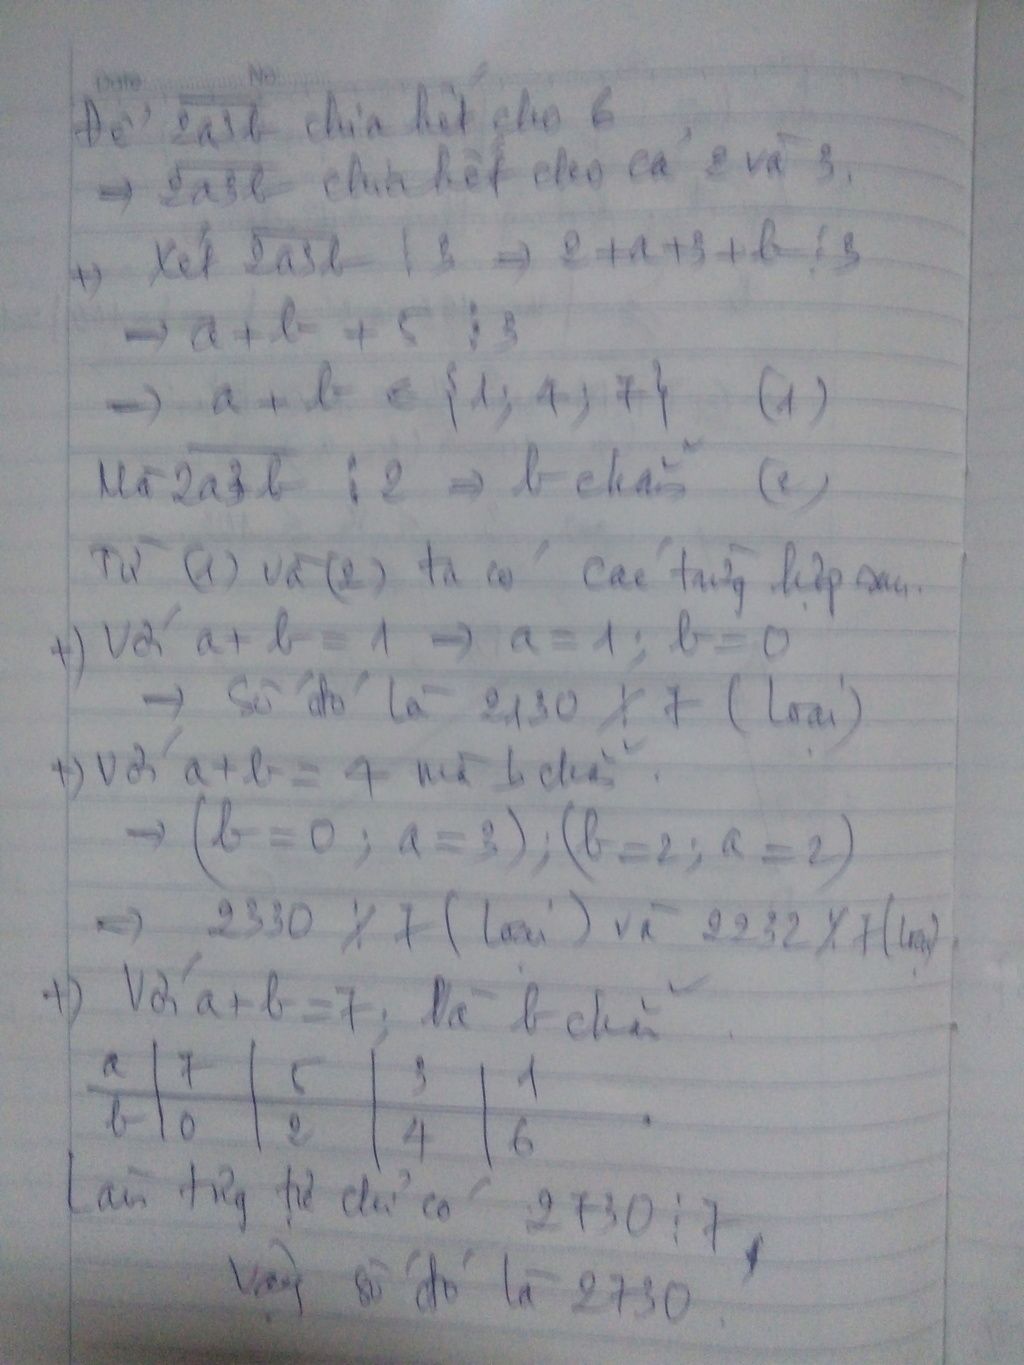 Date No
Để 2a3b chia hết cho 6
→ 2a3b chia hết cho cả 2 và 3.
+) Xét 2a3b ⋮ 3 → 2+a+3+b ⋮ 3
→ a + b + 5 ⋮ 3
→ a + b ∈ {1; 4; 7} (1)
Mà 2a3b ⋮ 2 → b chẵn (2)
Từ (1) và (2) ta có các trường hợp sau.
+) Với a + b = 1 → a = 1; b = 0
→ Số đó là 2130 ⋮̸ 7 (loại)
+) Với a + b = 4 mà b chẵn.
→ (b = 0; a = 3); (b = 2; a = 2)
→ 2330 ⋮̸ 7 (loại) và 2232 ⋮̸ 7 (loại).
+) Với a + b = 7; Mà b chẵn.
a | 7 | 5 | 3 | 1
b | 0 | 2 | 4 | 6
Làm tương tự chỉ có 2730 ⋮ 7,
Vậy số đó là 2730.